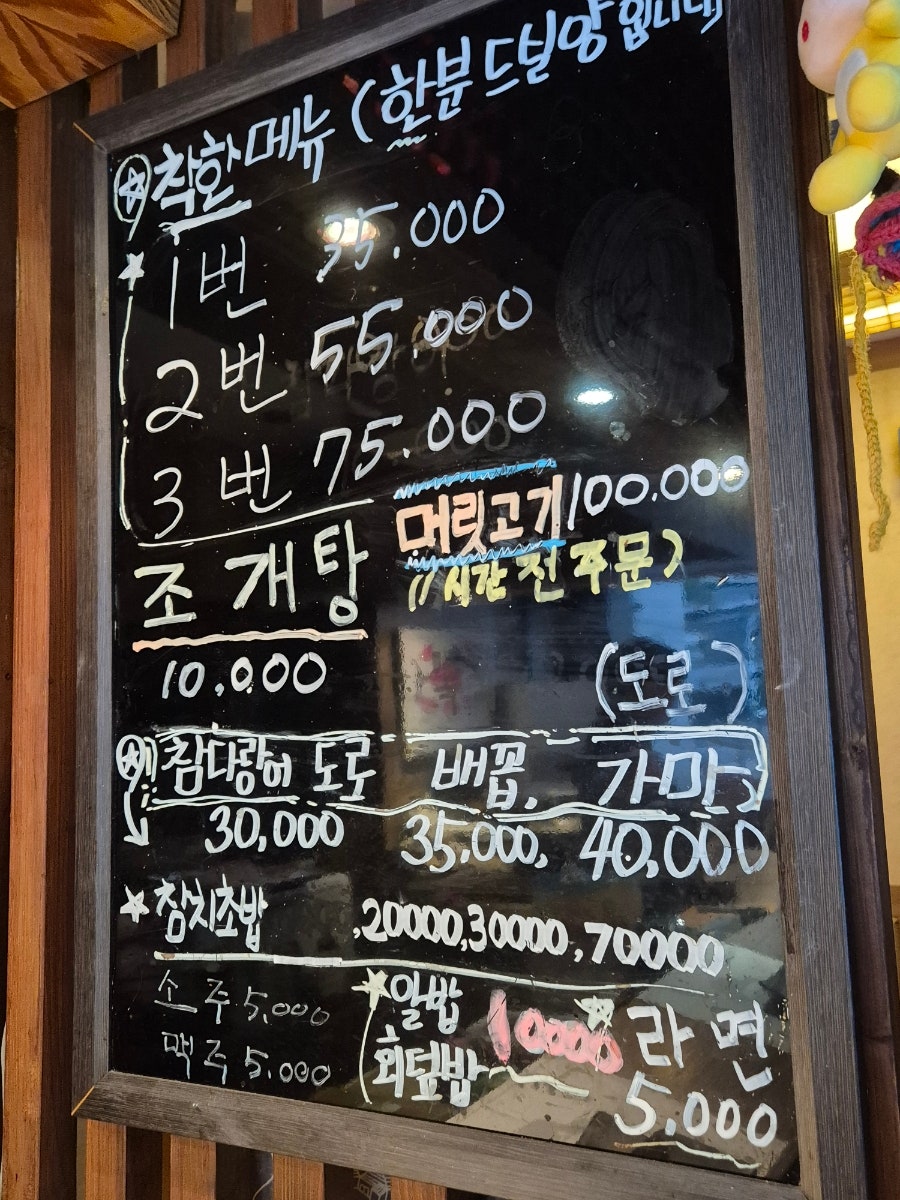 착한 메뉴 (한분 드실 양 입니다)
1번 35.000
2번 55.000
3번 75.000
머릿고기 100.000
(1시간 전 주문)
조개탕
10,000
(도로)
참다랑어 도로 배꼽, 가마
30,000 35,000, 40,000
참치초밥 ,20000,30000,70000
소주 5,000
맥주 5.000
알밥
회덮밥
10000
라면
5.000